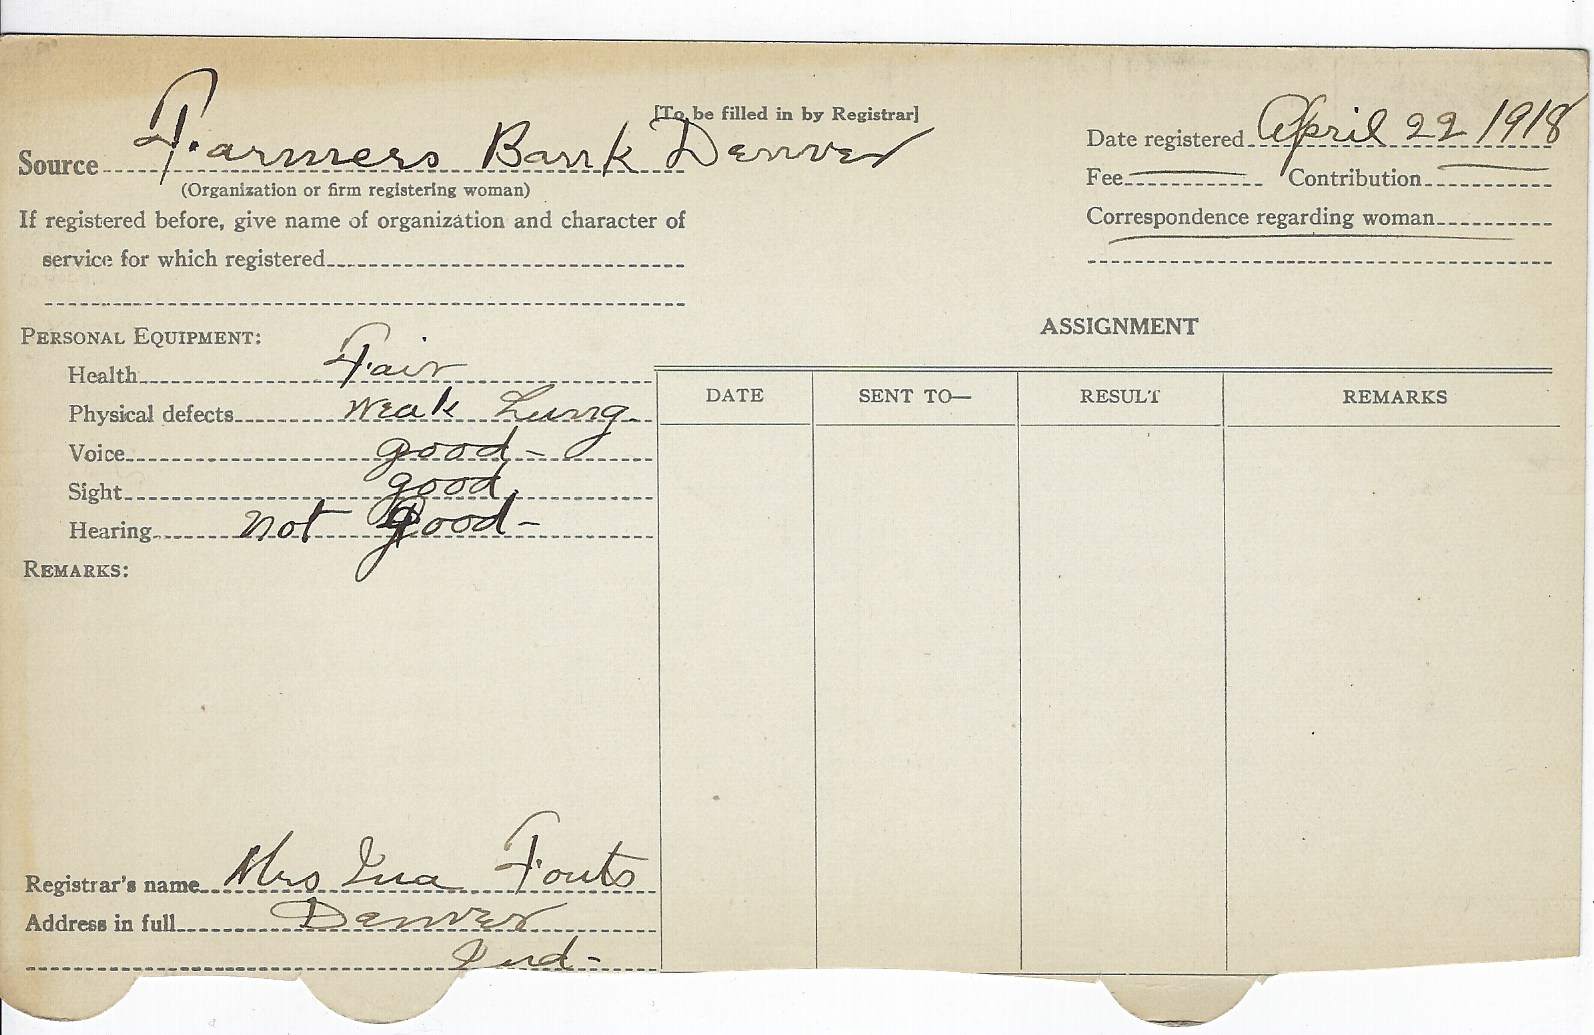 [To be filled in by Registrar]
Source Farmers Bank Denver
(Organization or firm registering woman)
If registered before, give name of organization and character of
service for which registered
Date registered April 22 1918
Fee Contribution
Correspondence regarding woman
PERSONAL EQUIPMENT:
Health Fair
Physical defects weak Lung
Voice good-
Sight good
Hearing not good-
REMARKS:
Registrar's name Mrs Ina Fouts
Address in full Denver
Ind-
ASSIGNMENT
DATE SENT TO— RESULT REMARKS